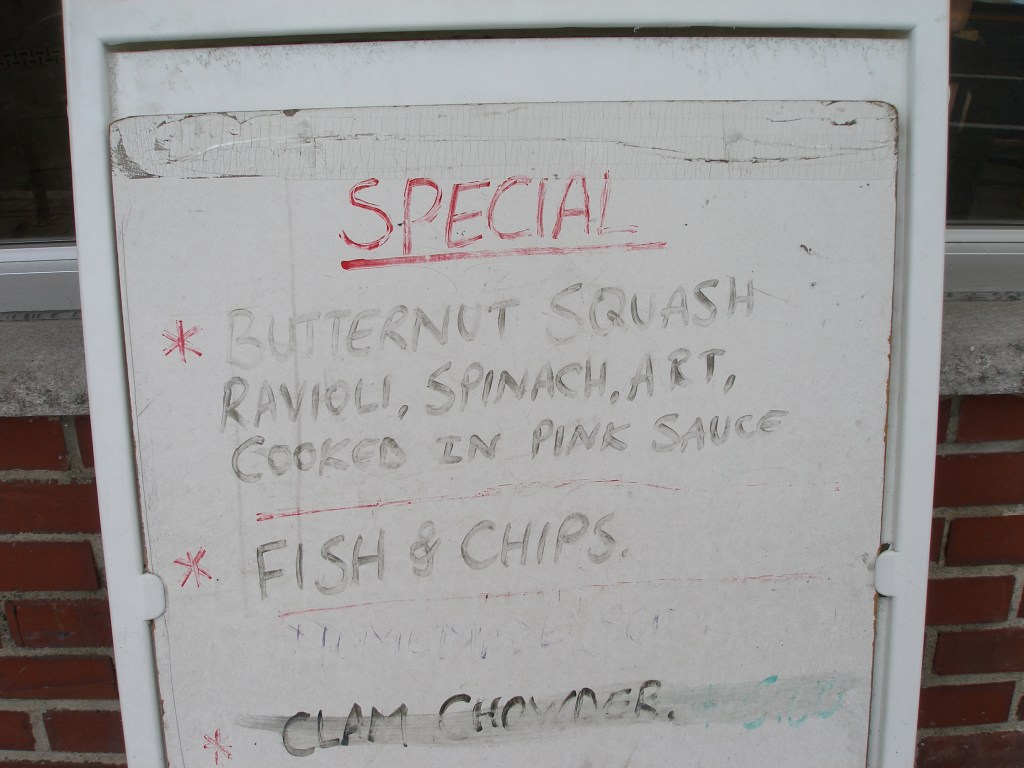 SPECIAL
* BUTTERNUT SQUASH
RAVIOLI, SPINACH, ART,
COOKED IN PINK SAUCE
* FISH & CHIPS.
* CLAM CHOWDER.